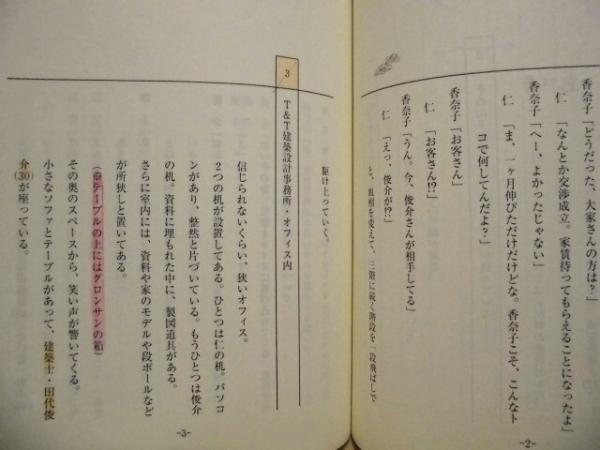 香奈子「どうだった、大家さんの方は?」
仁「なんとか交渉成立。家賃待ってもらえることになったよ」
香奈子「へー、よかったじゃない」
仁「ま、一ヶ月伸びただけだけどな。香奈子こそ、こんなト
コで何してんだよ?」
香奈子「お客さん」
仁「お客さん!?」
香奈子「うん。今、俊介さんが相手してる」
仁「えっ、俊介が!?」
と、血相を変えて、三階に続く階段を一段飛ばしで
-2-
駆け上っていく。
3 T&T建築設計事務所・オフィス内
信じられないくらい、狭いオフィス。
2つの机が設置してある。ひとつは仁の机。パソコ
ンがあり、整然と片づいている。もうひとつは俊介
の机。資料に埋もれた中に、製図道具がある。
さらに室内には、資料や家のモデルや段ボールなど
が所狭しと置いてある。
(※テーブルの上にはグロンサンの箱)
その奥のスペースから、笑い声が響いてくる。
小さなソファとテーブルがあって、建築士・田代俊
介(30)が座っている。
-3-